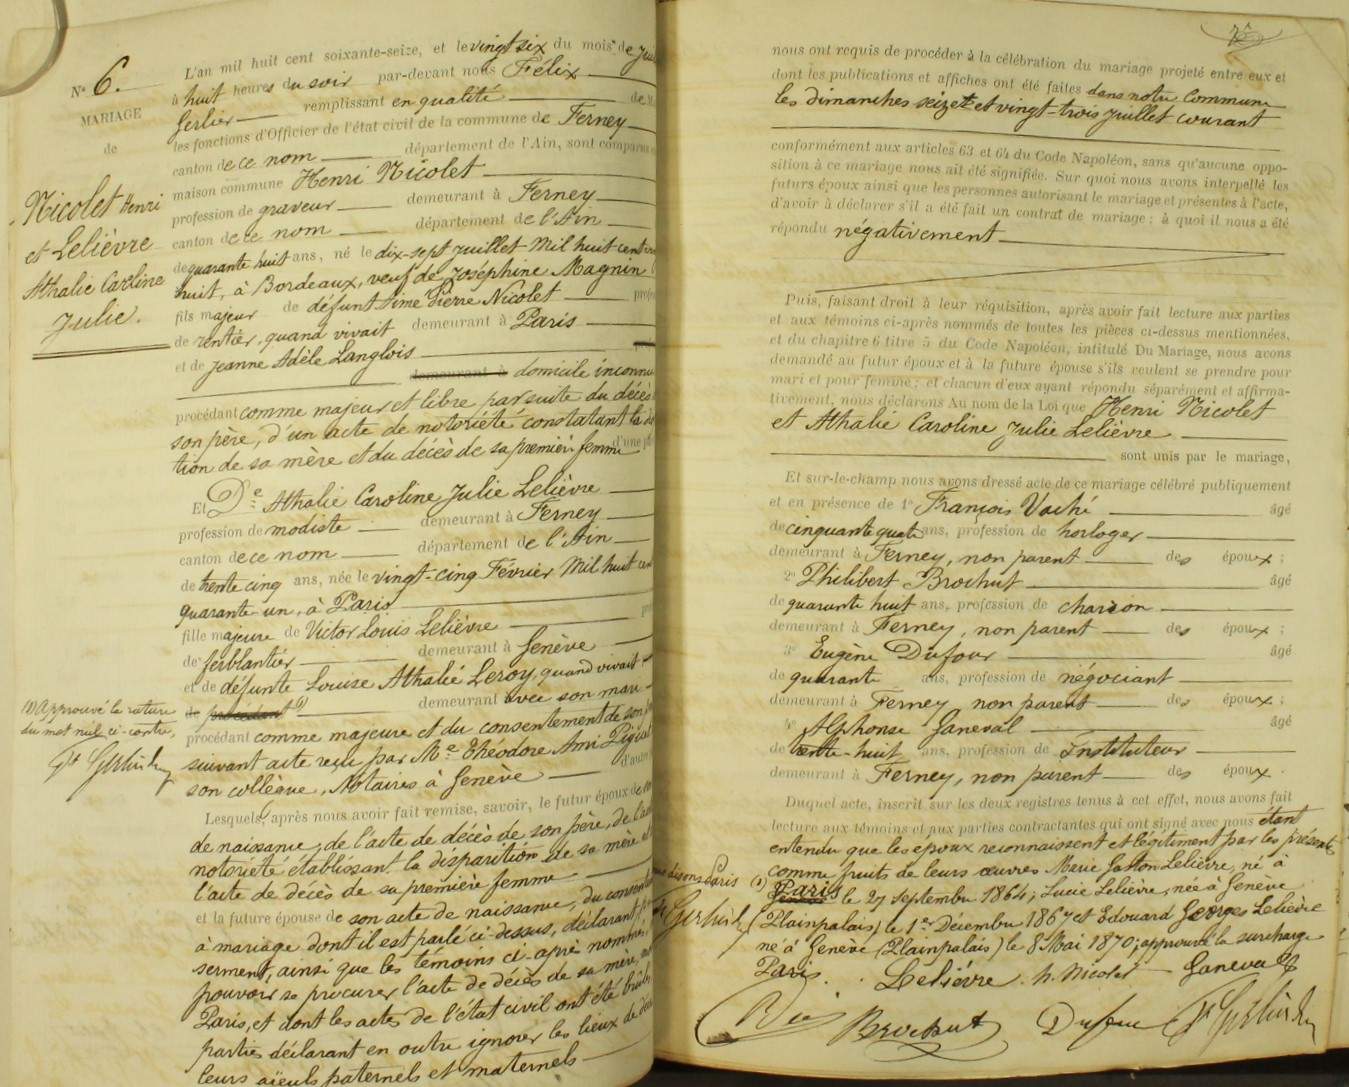 N° 6.
MARIAGE
de
Nicolet Henri
et Lelièvre
Athalie Caroline
Julie.
L'an mil huit cent soixante-seize, et le vingt six du mois de
à huit heures du soir par-devant nous Félix
Gerlier remplissant en qualité de
les fonctions d'Officier de l'état civil de la commune de Ferney
canton de ce nom département de l'Ain, sont comparus
maison commune Henri Nicolet
profession de graveur demeurant à Ferney
canton de ce nom département de l'Ain
de quarante huit ans, né le dix-sept Juillet Mil huit cent
huit, à Bordeaux, veuf de Joséphine Magnin
fils majeur de défunt Pierre Nicolet
de rentier, quand vivait demeurant à Paris
et de Jeanne Adèle Langlois
demeurant à domicile inconnu
procédant comme majeur et libre par suite du décès
son père, d'un acte de notoriété constatant la
tion de sa mère et du décès de sa première femme d'une
Et De Athalie Caroline Julie Lelièvre
profession de modiste demeurant à Ferney
canton de ce nom département de l'Ain
de trente cinq ans, née le vingt-cinq Février Mil huit cent
quarante-un, à Paris
fille majeure de Victor Louis Lelièvre
de ferblantier demeurant à Genève
et de défunte Louise Athalie Leroy, quand vivait
de procédant (1) demeurant avec son mari
procédant comme majeure et du consentement de son
suivant acte reçu par Me Théodore Ami
son collègue, Notaires à Genève d'autre
(1) Approuvé la rature
du mot nul ci-contre,
Lesquels, après nous avoir fait remise, savoir, le futur époux de
de naissance, de l'acte de décès de son père, de l'acte
notoriété établissant la disparition de sa mère et
l'acte de décès de sa première femme
et la future épouse de son acte de naissance, du
à mariage dont il est parlé ci-dessus, déclarant
serment, ainsi que les témoins ci-après nommés,
pouvoir se procurer l'acte de décès de sa mère,
Paris, et dont les actes de l'état civil ont été brûlés
parties déclarant en outre ignorer les lieux de
leurs aïeuls paternels et maternels
nous ont requis de procéder à la célébration du mariage projeté entre eux et
dont les publications et affiches ont été faites dans notre commune
les dimanches seize et vingt-trois Juillet courant
conformément aux articles 63 et 64 du Code Napoléon, sans qu'aucune oppo-
sition à ce mariage nous ait été signifiée. Sur quoi nous avons interpellé les
futurs époux ainsi que les personnes autorisant le mariage et présentes à l'acte,
d'avoir à déclarer s'il a été fait un contrat de mariage ; à quoi il nous a été
répondu négativement
Puis, faisant droit à leur réquisition, après avoir fait lecture aux parties
et aux témoins ci-après nommés de toutes les pièces ci-dessus mentionnées,
et du chapitre 6 titre 5 du Code Napoléon, intitulé Du Mariage, nous avons
demandé au futur époux et à la future épouse s'ils veulent se prendre pour
mari et pour femme ; et chacun d'eux ayant répondu séparément et affirma-
tivement, nous déclarons Au nom de la Loi que Henri Nicolet
et Athalie Caroline Julie Lelièvre
sont unis par le mariage,
Et sur-le-champ nous avons dressé acte de ce mariage célébré publiquement
et en présence de 1° François Vaché âgé
de cinquante quatre ans, profession de horloger
demeurant à Ferney, non parent des époux ;
2° Philibert Brochut âgé
de quarante huit ans, profession de charron
demeurant à Ferney, non parent des époux ;
3° Eugène Dufour âgé
de quarante ans, profession de négociant
demeurant à Ferney non parent des époux ;
4° Alphonse Ganeval âgé
de trente-huit ans, profession de Instituteur
demeurant à Ferney, non parent des époux.
Duquel acte, inscrit sur les deux registres tenus à cet effet, nous avons fait
lecture aux témoins et aux parties contractantes qui ont signé avec nous étant
entendu que les époux reconnaissent et légitiment par les présentes
comme fruits de leurs œuvres Marie Gaston Lelièvre, né à
disons Paris (1) Paris le 27 Septembre 1864 ; Lucie Lelièvre, née à Genève
(Plainpalais) le 1er Décembre 1867 et Edouard Georges Lelièvre
né à Genève (Plainpalais) le 8 Mai 1870 ; approuvé la surcharge
Paris. Lelièvre h. Nicolet Ganeval
Brochut Dufour